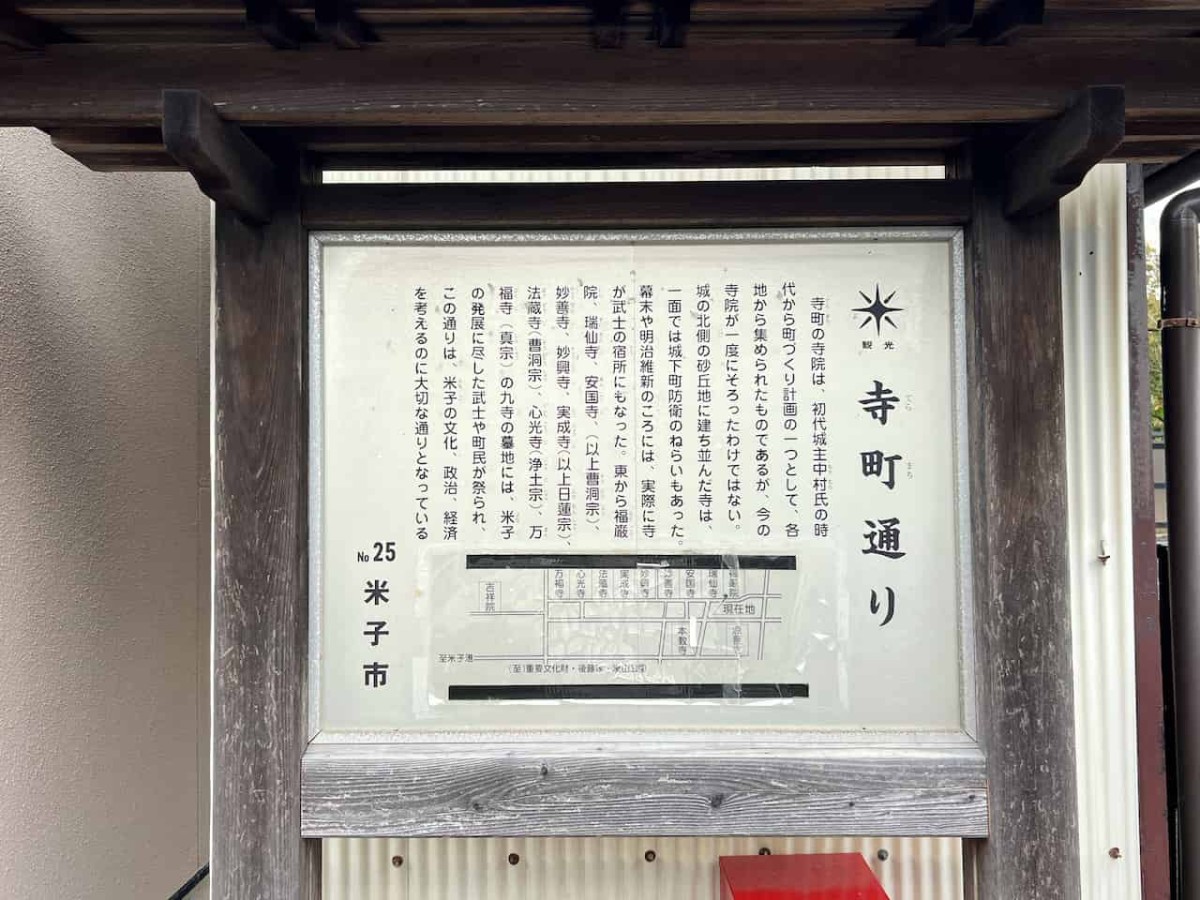 観光
寺町通り
てら
まち
寺町の寺院は、初代城主中村氏の時
代から町づくり計画の一つとして、各
地から集められたものであるが、今の
寺院が一度にそろったわけではない。
城の北側の砂丘地に建ち並んだ寺は、
一面では城下町防衛のねらいもあった。
幕末や明治維新のころには、実際に寺
が武士の宿所にもなった。東から福厳
院、瑞仙寺、安国寺、(以上曹洞宗)、
妙善寺、妙興寺、実成寺(以上日蓮宗)、
法蔵寺(曹洞宗)、心光寺(浄土宗)、万
福寺(真宗)の九寺の墓地には、米子
の発展に尽した武士や町民が祭られ、
この通りは、米子の文化、政治、経済
を考えるのに大切な通りとなっている
№25
米子市
福厳院
瑞仙寺
安国寺
妙善寺
妙興寺
実成寺
法蔵寺
心光寺
万福寺
吉祥院
現在地
本教寺
至米子港
(至)重要文化財・後藤